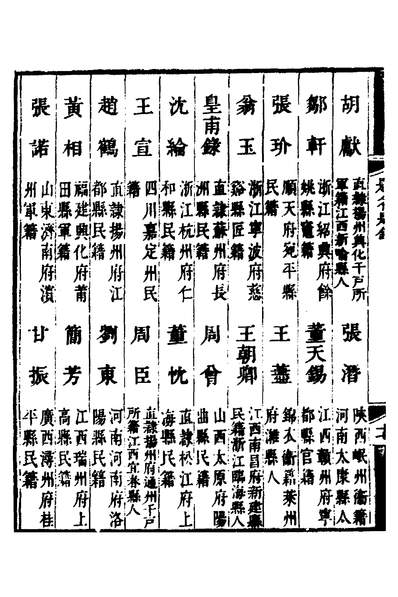 胡獻 直隸揚州興化千戶所軍籍江西新喻縣人
張潛 陝西岷州衞籍河南太康縣人
鄒軒 浙江紹興府餘姚縣竈籍
董天錫 江西贛州府寧都縣官籍
張玠 順天府宛平縣民籍
王藎 錦衣衞籍萊州府濰縣人
翁玉 浙江寧波府慈谿縣匠籍
王朝卿 江西南昌府新建縣民籍浙江臨海縣人
皇甫錄 直隸蘇州府長洲縣民籍
周曾 山西太原府陽曲縣民籍
沈綸 浙江杭州府仁和縣民籍
董忱 直隸松江府上海縣民籍
王宣 四川嘉定州民籍
周臣 直隸揚州府通州千戶所籍江西宜春縣人
趙鶴 直隸揚州府江都縣民籍
劉東 河南河南府洛陽縣民籍
黃相 福建興化府莆田縣軍籍
簡芳 江西瑞州府上高縣民籍
張諾 山東濟南府濱州軍籍
甘振 廣西潯州府桂平縣民籍